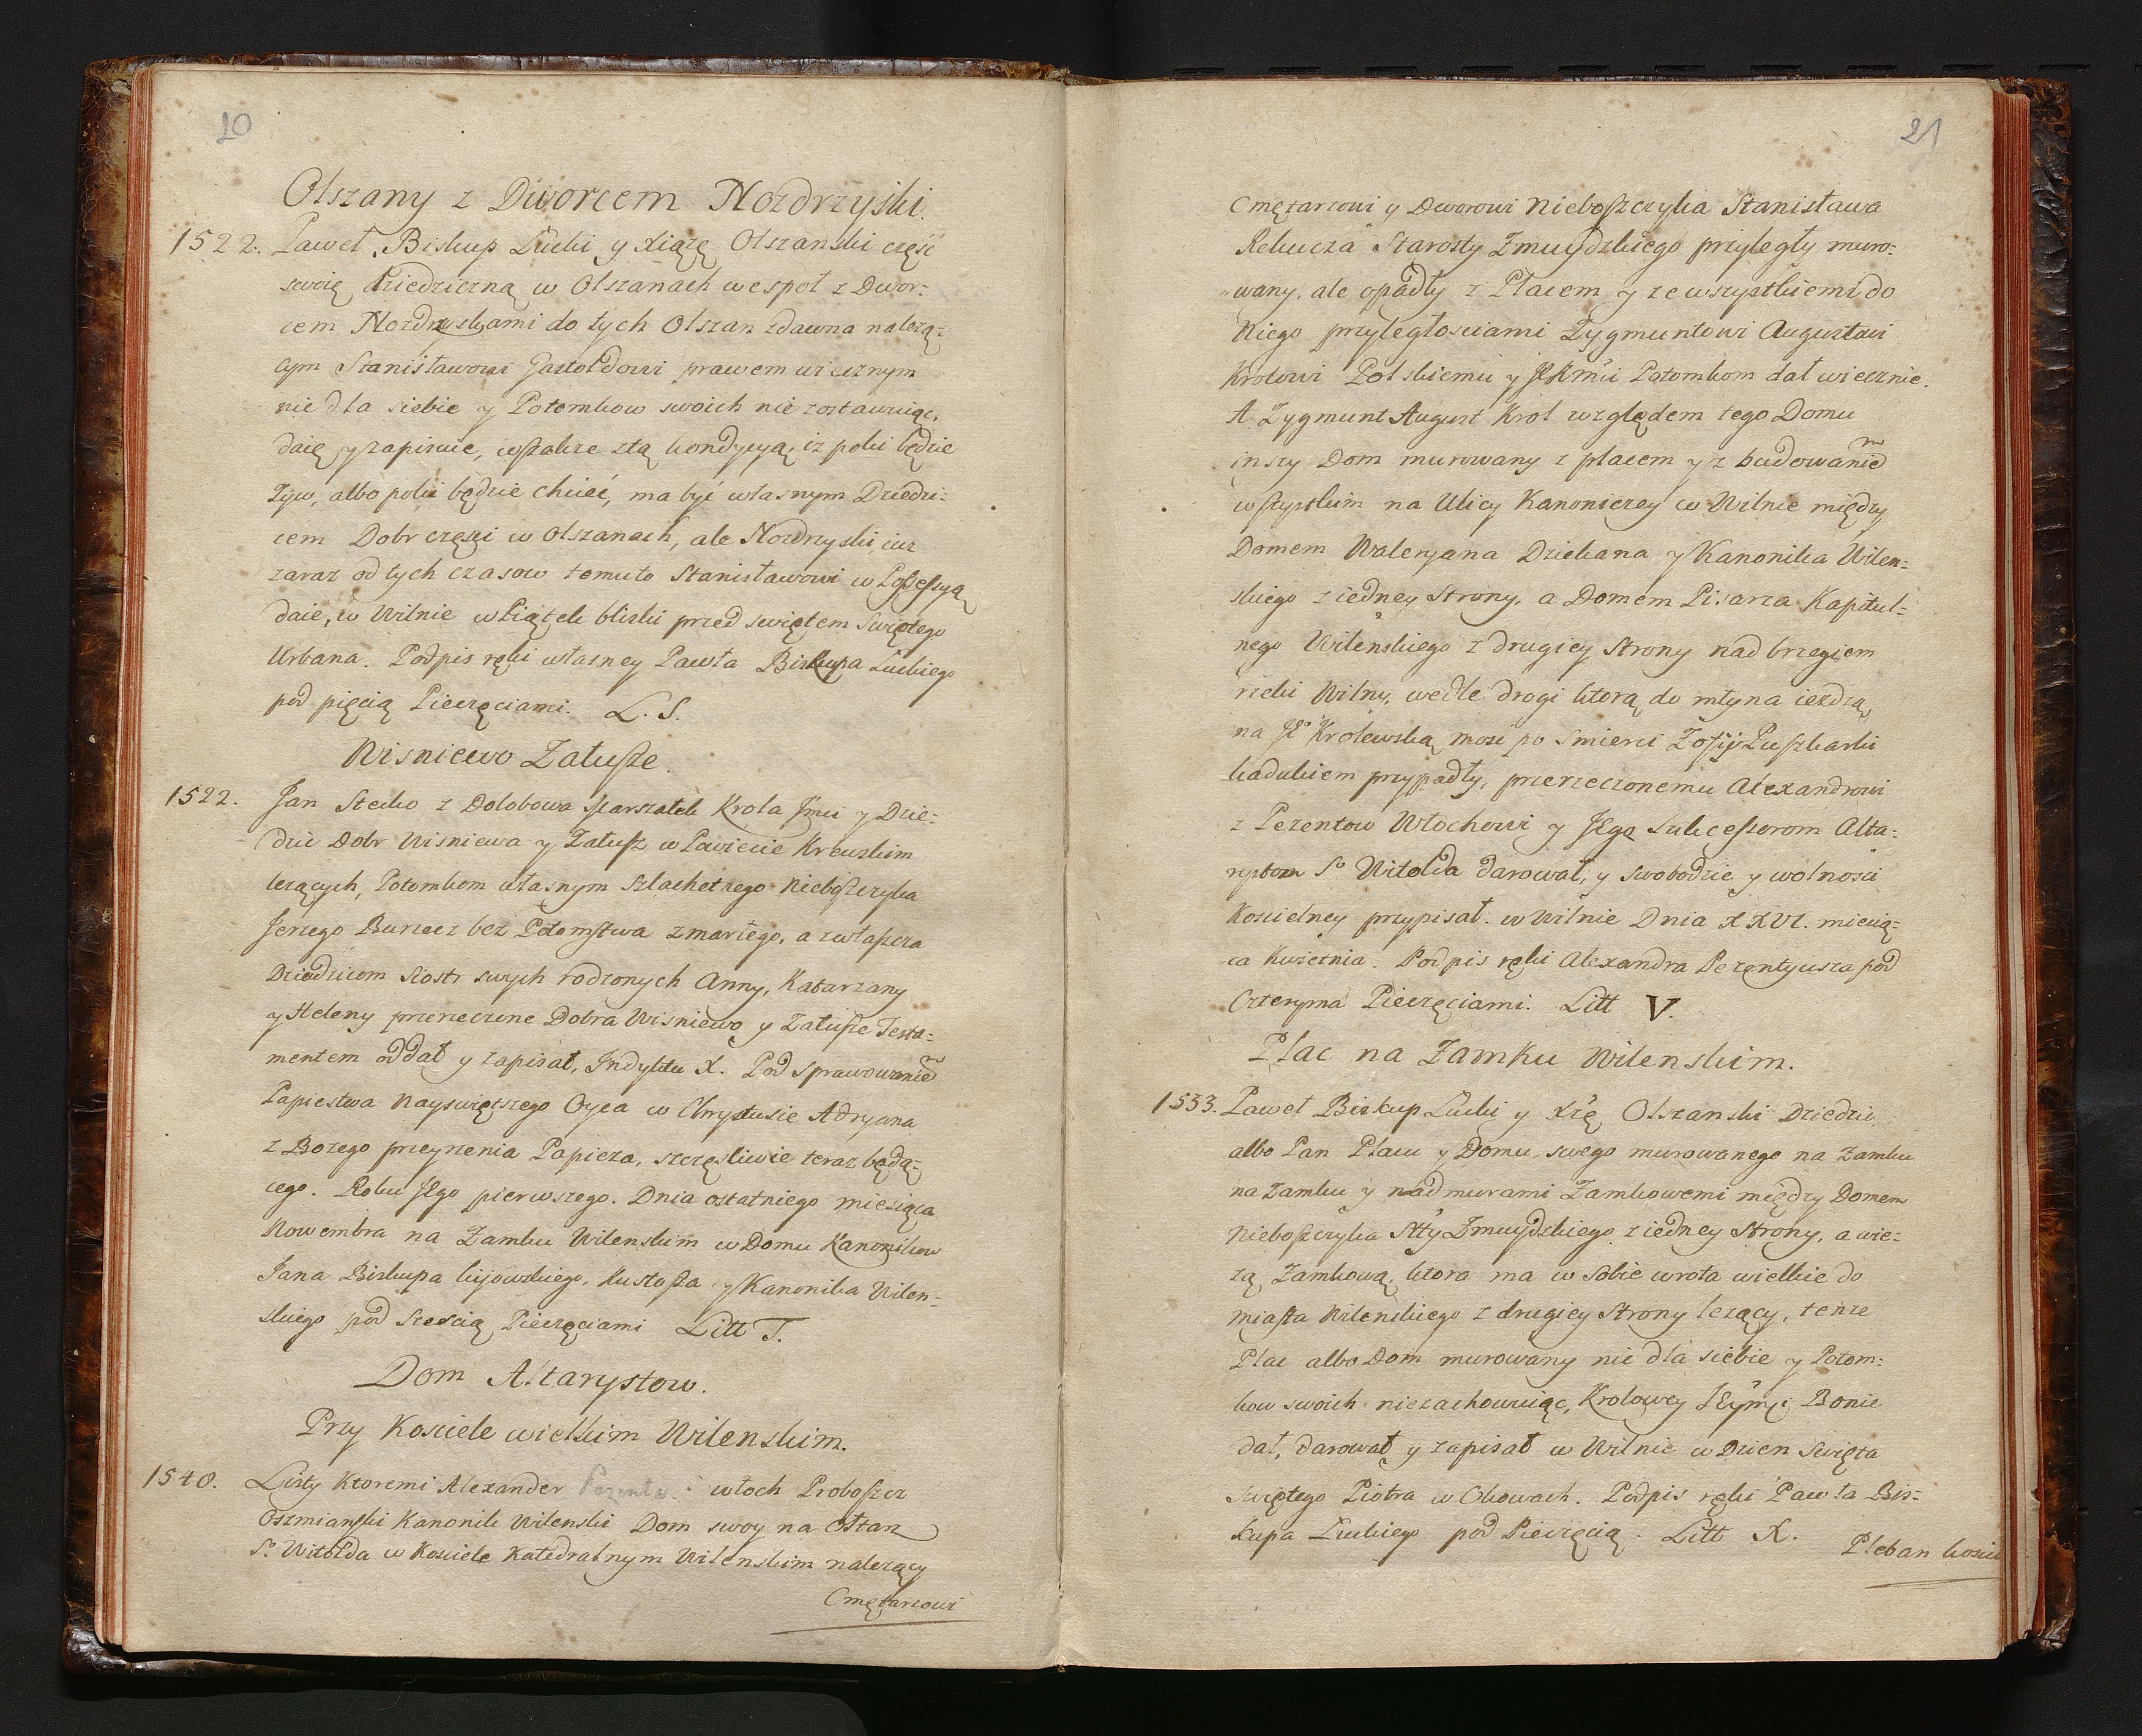 20
Olszany z Dworcem Nozdrzyski.
1522. Paweł Biskup Łucki y Xiążę Olszanski część
swoię dziedziczną w Olszanach wespoł z Dwor=
cem Nozdrzyskami do tych Olszan zdawna należą=
cym Stanisławowi Gasztoldowi prawem wiecznym
nie dla siebie y Potomkow swoich nie zostawuiąc,
daię y zapisuie, wszakże ztą kondycyą, iż poki będzie
żyw, albo poki będzie chcieć, ma być własnym Dziedzi=
cem Dobr części w Olszanach, ale Nozdrzyski iuż
zaraz od tych czasow temuto Stanisławowi w Possessyą
daie, w Wilnie w Piątek bliski przed swiętem Swiętego
Urbana. Podpis ręki własney Pawła Biskupa Łuckiego
pod pięcią Pieczęciami. L. S.
Wisniewo Zatusze.
1522. Jan Stecko z Dolobowa Marszałek Krola Jmci y Dzie=
dzic Dobr Wisniewa y Zatusz w Powiecie Krewskim
leżących, Potomkom własnym Szlachetnego Nieboszczyka
Jerzego bez Potomstwa zmarłego, a zwłaszcza
Dziedzicom Siostr swych rodzonych Anny, Katarzany
y Heleny przerzeczone Dobra Wisniewo y Zatusze Testa=
mentem oddał y zapisał, Indyktu X. Pod sprawowanie͠
Papiestwa Nayswiętszego Oyca w Chrystusie Adryana
z Bożego przeyrzenia Papieża, szczęsliwie teraz będą=
cego. Roku Jego pierwszego. Dnia ostatniego miesiąca
Nowembra na Zamku Wilenskim w Domu Kanonikow
Jana Biskupa kijowskiego, Kustosza y Kanonika Wilen=
skiego pod Szescią Pieczęciami Litt T.
Dom Altarystow.
Przy Kosciele wielkim Wilenskim.
1540. Listy Ktoremi Alexander Pezenta włoch Proboszcz
Oszmianski Kanonik Wilenski Dom swoy na Ołtarz
So Witolda w Kosciele Katedralnym Wilenskim należący
Cmętarzowi
21
Cmętarzowi y Dworowi Nieboszczyka Stanisława
Rekucza Starosty Zmuydzkiego przyległy muro=
wany, ale opadły z Placem y ze wszystkiemi do
Niego przyległosciami Zygmuntowi Augustowi
Krolowi Polskiemu y JKmci Potomkom dał wiecznie.
A Zygmunt August Krol względem tego Domu
inszy Dom murowany z placem y z budowanie͠
wszystkim na Ulicy Kanoniczey w Wilnie między
Domem Waleryana Dziekana y Kanonika Wilen=
skiego z iedney Strony, a Domem Pisarza Kapitul=
nego Wilenskiego z drugiey Strony nad brzegiem
rzeki Wilny, wedle drogi ktorą do młyna ieżdzą,
na Jo Krolewską mosc po Smierci Zofij Puszkarki
kadukiem przypadły, przerzeczonemu Alexandrowi
z Pezentow Włochowi y Jego Sukcessorom Alta=
rystom So Witolda darował, y Swobodzie y wolnosci
Koscielney przypisał. w Wilnie Dnia XXVI. miesią=
ca Kwietnia. Podpis ręki Alexandra Pezentyusza pod
Czteryma Pieczęciami. Litt V.
Plac na Zamku Wilenskim.
1533. Paweł Biskup Łucki y Xżę Olszanski Dziedzic
albo Pan Placu y Domu swego murowanego na Zamku
na Zamku y nad murami Zamkowemi między Domem
Nieboszczyka Stty Zmuydzkiego z iedney Strony, a wie=
żą Zamkową, ktora ma w sobie wrota wielkie do
miasta Wilenskiego z drugiey Strony leżący, tenże
Plac albo Dom murowany nie dla siebie y Potom=
kow swoich niezachowuiąc, Krolowey Jeymci Bonie
dał, darował y zapisał w Wilnie w Dzien Swięta
Swiętego Piotra w Okowach. Podpis ręki Pawła Bis=
kupa Łuckiego pod Pieczęcią. Litt X.
Pleban